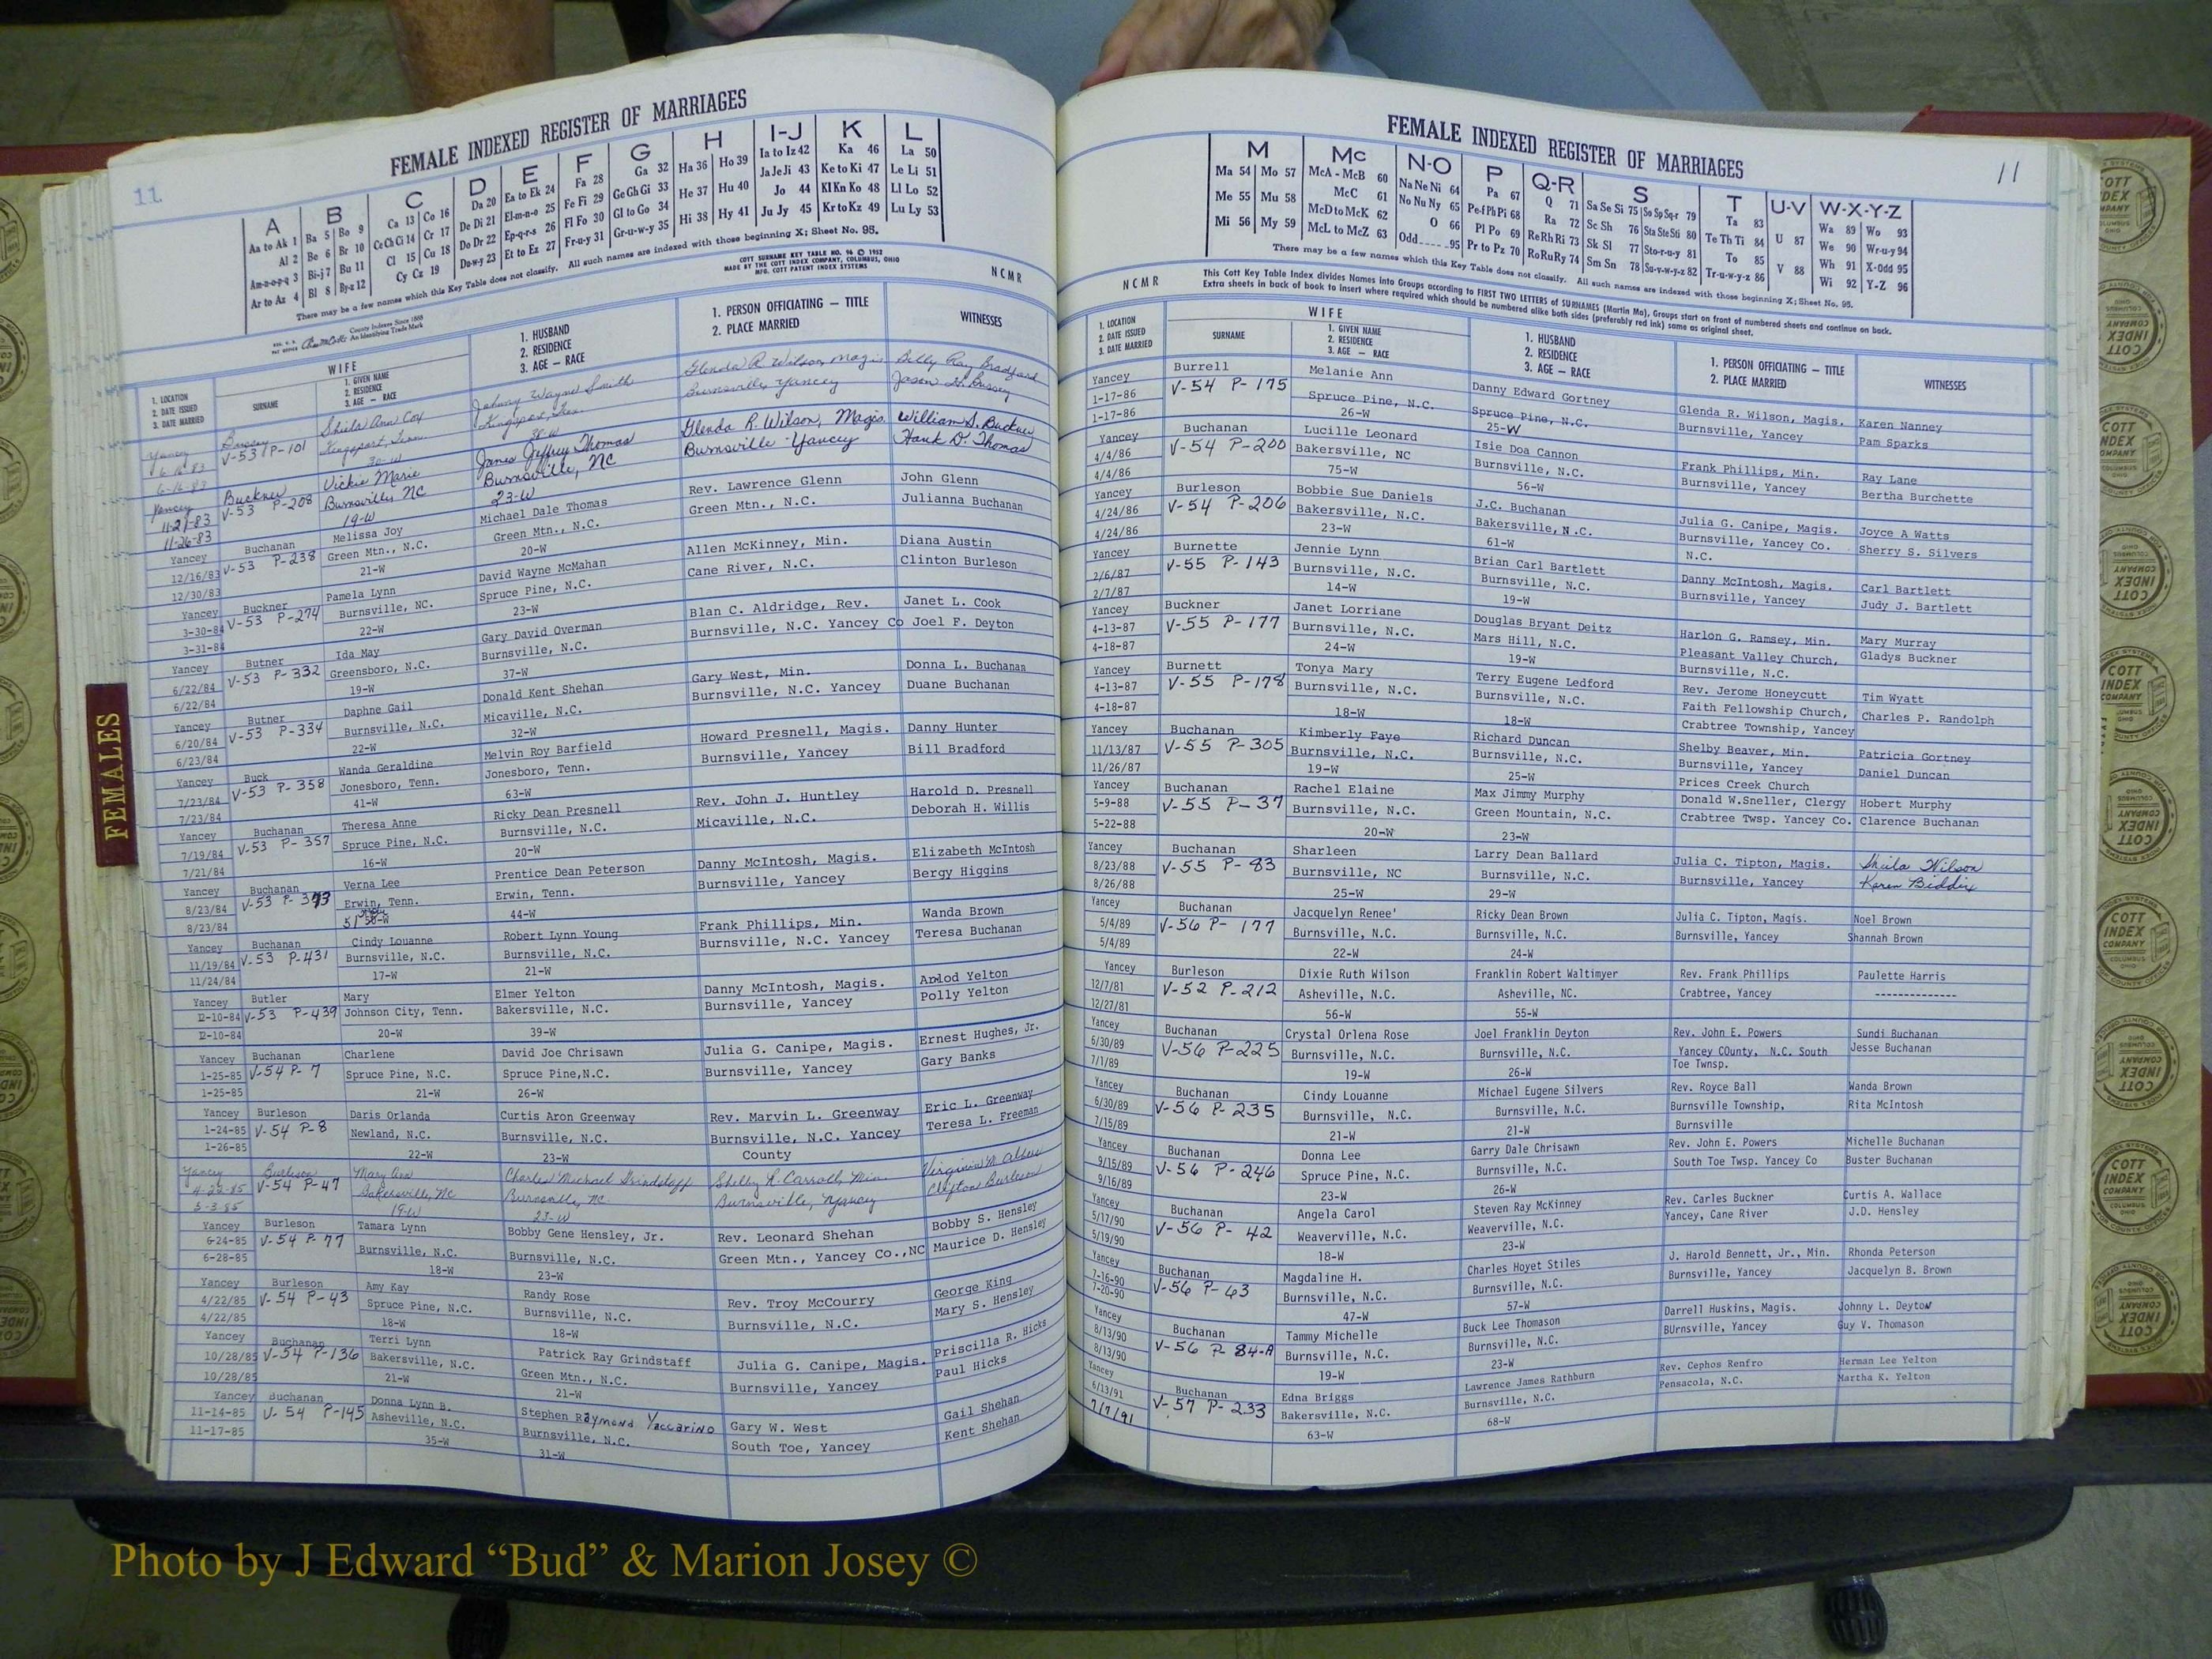 FEMALE INDEXED REGISTER OF MARRIAGES
11
A B C D E F G H I-J K L
Aa to Ak 1 Ba 5 Bo 9 Ca 13 Co 16 Da 20 Ea to Ek 24 Fa 28 Ga 32 Ha 36 Ho 39 Ia to Iz 42 Ka 46 La 50
Al 2 Be 6 Br 10 Ce Ch Ci 14 Cr 17 De Di 21 El-m-n-o 25 Fe Fi 29 Ge Gh Gi 33 He 37 Hu 40 Ja Je Ji 43 Ke to Ki 47 Le Li 51
Am-n-o-p-q 3 Bi-j 7 Bu 11 Cl 15 Cu 18 Do Dr 22 Ep-q-r-s 26 Fl Fo 30 Gl to Go 34 Hi 38 Hy 41 Jo 44 Kl Kn Ko 48 Ll Lo 52
Ar to Az 4 Bl 8 By-z 12 Cy Cz 19 Du-w-y 23 Et to Ez 27 Fr-u-y 31 Gr-u-w-y 35 Ju Jy 45 Kr to Kz 49 Lu Ly 53
There may be a few names which this Key Table does not classify. All such names are indexed with those beginning X; Sheet No. 95.
COTT SURNAME KEY TABLE NO. 96 © 1952
MADE BY THE COTT INDEX COMPANY, COLUMBUS, OHIO
MFG. COTT PATENT INDEX SYSTEMS
NCMR
County Indexes Since 1888
An Identifying Trade Mark
1. LOCATION
2. DATE ISSUED
3. DATE MARRIED
WIFE
SURNAME
1. GIVEN NAME
2. RESIDENCE
3. AGE — RACE
1. HUSBAND
2. RESIDENCE
3. AGE — RACE
1. PERSON OFFICIATING — TITLE
2. PLACE MARRIED
WITNESSES
Yancey Bussey Shiela Ann Cox Johnny Wayne Smith Glenda R Wilson, Magis. Billy Ray Bradford
6-16-83 V-53 P-101 Kingsport, Tenn. Kingsport, Tenn. Burnsville, Yancey Jason D. Bussey
6-16-83 30-W 38-W
Yancey Buckner Vickie Marie James Jeffrey Thomas Glenda R. Wilson, Magis. William S. Buckner
11-21-83 V-53 P-208 Burnsville, NC Burnsville, NC Burnsville Yancey Hank D. Thomas
11-26-83 19-W 23-W
Yancey Buchanan Melissa Joy Michael Dale Thomas Rev. Lawrence Glenn John Glenn
12/16/83 V-53 P-238 Green Mtn., N.C. Green Mtn., N.C. Green Mtn., N.C. Julianna Buchanan
12/30/83 21-W 20-W
Yancey Buckner Pamela Lynn David Wayne McMahan Allen McKinney, Min. Diana Austin
3-30-84 V-53 P-274 Burnsville, NC. Spruce Pine, N.C. Cane River, N.C. Clinton Burleson
3-31-84 22-W 23-W
Yancey Butner Ida May Gary David Overman Blan C. Aldridge, Rev. Janet L. Cook
6/22/84 V-53 P-332 Greensboro, N.C. Burnsville, N.C. Burnsville, N.C. Yancey Co Joel F. Deyton
6/22/84 19-W 37-W
Yancey Butner Daphne Gail Donald Kent Shehan Gary West, Min. Donna L. Buchanan
6/20/84 V-53 P-334 Burnsville, N.C. Micaville, N.C. Burnsville, N.C. Yancey Duane Buchanan
6/23/84 22-W 32-W
Yancey Buck Wanda Geraldine Melvin Roy Barfield Howard Presnell, Magis. Danny Hunter
7/23/84 V-53 P-358 Jonesboro, Tenn. Jonesboro, Tenn. Burnsville, Yancey Bill Bradford
7/23/84 41-W 63-W
Yancey Buchanan Theresa Anne Ricky Dean Presnell Rev. John J. Huntley Harold D. Presnell
7/19/84 V-53 P-357 Spruce Pine, N.C. Burnsville, N.C. Micaville, N.C. Deborah H. Willis
7/21/84 16-W 20-W
Yancey Buchanan Verna Lee Prentice Dean Peterson Danny McIntosh, Magis. Elizabeth McIntosh
8/23/84 V-53 P-373 Erwin, Tenn. Erwin, Tenn. Burnsville, Yancey Bergy Higgins
8/23/84 51 50-W 44-W
Yancey Buchanan Cindy Louanne Robert Lynn Young Frank Phillips, Min. Wanda Brown
11/19/84 V-53 P-431 Burnsville, N.C. Burnsville, N.C. Burnsville, N.C. Yancey Teresa Buchanan
11/24/84 17-W 21-W
Yancey Butler Mary Elmer Yelton Danny McIntosh, Magis. Arlod Yelton
12-10-84 V-53 P-439 Johnson City, Tenn. Bakersville, N.C. Burnsville, Yancey Polly Yelton
12-10-84 20-W 39-W
Yancey Buchanan Charlene David Joe Chrisawn Julia G. Canipe, Magis. Ernest Hughes, Jr.
1-25-85 V-54 P-7 Spruce Pine, N.C. Spruce Pine,N.C. Burnsville, Yancey Gary Banks
1-25-85 21-W 26-W
Yancey Burleson Daris Orlanda Curtis Aron Greenway Rev. Marvin L. Greenway Eric L. Greenway
1-24-85 V-54 P-8 Newland, N.C. Burnsville, N.C. Burnsville, N.C. Yancey Teresa L. Freeman
1-26-85 22-W 23-W County
Yancey Burleson Mary Ann Charles Michael Grindstaff Shelby R. Carroll, Min. Virginia M. Allen
4-22-85 V-54 P-47 Bakersville, NC Burnsville, NC Burnsville, Yancey Clayton Burleson
5-3-85 19-W 23-W
Yancey Burleson Tamara Lynn Bobby Gene Hensley, Jr. Rev. Leonard Shehan Bobby S. Hensley
6-24-85 V-54 P-77 Burnsville, N.C. Burnsville, N.C. Green Mtn., Yancey Co.,NC Maurice D. Hensley
6-28-85 18-W 23-W
Yancey Burleson Amy Kay Randy Rose Rev. Troy McCourry George King
4/22/85 V-54 P-43 Spruce Pine, N.C. Burnsville, N.C. Burnsville, N.C. Mary S. Hensley
4/22/85 18-W 18-W
Yancey Buchanan Terri Lynn Patrick Ray Grindstaff Julia G. Canipe, Magis. Priscilla R. Hicks
10/28/85 V-54 P-136 Bakersville, N.C. Green Mtn., N.C. Burnsville, Yancey Paul Hicks
10/28/85 21-W 21-W
Yancey Buchanan Donna Lynn B. Stephen Raymond Yaccarino Gary W. West Gail Shehan
11-14-85 V-54 P-145 Asheville, N.C. Burnsville, N.C. South Toe, Yancey Kent Shehan
11-17-85 35-W 31-W
FEMALES
FEMALE INDEXED REGISTER OF MARRIAGES
11
M Mc N-O P Q-R S T U-V W-X-Y-Z
Ma 54 Mo 57 McA - McB 60 Na Ne Ni 64 Pa 67 Q 71 Sa Se Si 75 So Sp Sq-r 79 Ta 83 Wa 89 Wo 93
Me 55 Mu 58 McC 61 No Nu Ny 65 Pe-f Ph Pi 68 Ra 72 Sc Sh 76 Sta Ste Sti 80 Te Th Ti 84 U 87 We 90 Wr-u-y 94
Mi 56 My 59 McD to McK 62 O 66 Pl Po 69 Re Rh Ri 73 Sk Sl 77 Sto-r-u-y 81 To 85 V 88 Wh 91 X-Odd 95
McL to McZ 63 Odd 95 Pr to Pz 70 Ro Ru Ry 74 Sm Sn 78 Su-v-w-y-z 82 Tr-u-w-y-z 86 Wi 92 Y-Z 96
There may be a few names which this Key Table does not classify. All such names are indexed with those beginning X; Sheet No. 95.
NCMR
This Cott Key Table Index divides Names into Groups according to FIRST TWO LETTERS of SURNAMES (Martin Ma), Groups start on front of numbered sheets and continue on back.
Extra sheets in back of book to insert where required which should be numbered alike both sides (preferably red ink) same as original sheet.
1. LOCATION
2. DATE ISSUED
3. DATE MARRIED
WIFE
SURNAME
1. GIVEN NAME
2. RESIDENCE
3. AGE — RACE
1. HUSBAND
2. RESIDENCE
3. AGE — RACE
1. PERSON OFFICIATING — TITLE
2. PLACE MARRIED
WITNESSES
Yancey Burrell Melanie Ann Danny Edward Gortney Glenda R. Wilson, Magis. Karen Nanney
1-17-86 V-54 P-175 Spruce Pine, N.C. Spruce Pine, N.C. Burnsville, Yancey Pam Sparks
1-17-86 26-W 25-W
Yancey Buchanan Lucille Leonard Isie Doa Cannon Frank Phillips, Min. Ray Lane
4/4/86 V-54 P-200 Bakersville, NC Burnsville, N.C. Burnsville, Yancey Bertha Burchette
4/4/86 75-W 56-W
Yancey Burleson Bobbie Sue Daniels J.C. Buchanan Julia G. Canipe, Magis. Joyce A Watts
4/24/86 V-54 P-206 Bakersville, N.C. Bakersville, N.C. Burnsville, Yancey Co. Sherry S. Silvers
4/24/86 23-W 61-W N.C.
Yancey Burnette Jennie Lynn Brian Carl Bartlett Danny McIntosh, Magis. Carl Bartlett
2/6/87 V-55 P-143 Burnsville, N.C. Burnsville, N.C. Burnsville, Yancey Judy J. Bartlett
2/7/87 14-W 19-W
Yancey Buckner Janet Lorriane Douglas Bryant Deitz Harlon G. Ramsey, Min. Mary Murray
4-13-87 V-55 P-177 Burnsville, N.C. Mars Hill, N.C. Pleasant Valley Church, Gladys Buckner
4-18-87 24-W 19-W Burnsville, N.C.
Yancey Burnett Tonya Mary Terry Eugene Ledford Rev. Jerome Honeycutt Tim Wyatt
4-13-87 V-55 P-178 Burnsville, N.C. Burnsville, N.C. Faith Fellowship Church, Charles P. Randolph
4-18-87 18-W 18-W Crabtree Township, Yancey
Yancey Buchanan Kimberly Faye Richard Duncan Shelby Beaver, Min. Patricia Gortney
11/13/87 V-55 P-305 Burnsville, N.C. Burnsville, N.C. Burnsville, Yancey Daniel Duncan
11/26/87 19-W 25-W Prices Creek Church
Yancey Buchanan Rachel Elaine Max Jimmy Murphy Donald W.Sneller, Clergy Hobert Murphy
5-9-88 V-55 P-37 Burnsville, N.C. Green Mountain, N.C. Crabtree Twsp. Yancey Co. Clarence Buchanan
5-22-88 20-W 23-W
Yancey Buchanan Sharleen Larry Dean Ballard Julia C. Tipton, Magis. Sheila Wilson
8/23/88 V-55 P-83 Burnsville, NC Burnsville, N.C. Burnsville, Yancey Karen Biddix
8/26/88 25-W 29-W
Yancey Buchanan Jacquelyn Renee' Ricky Dean Brown Julia C. Tipton, Magis. Noel Brown
5/4/89 V-56 P-177 Burnsville, N.C. Burnsville, N.C. Burnsville, Yancey Shannah Brown
5/4/89 22-W 24-W
Yancey Burleson Dixie Ruth Wilson Franklin Robert Waltimyer Rev. Frank Phillips Paulette Harris
12/7/81 V-52 P-212 Asheville, N.C. Asheville, NC. Crabtree, Yancey --------------
12/27/81 56-W 55-W
Yancey Buchanan Crystal Orlena Rose Joel Franklin Deyton Rev. John E. Powers Sundi Buchanan
6/30/89 V-56 P-225 Burnsville, N.C. Burnsville, N.C. Yancey COunty, N.C. South Jesse Buchanan
7/1/89 19-W 26-W Toe Twnsp.
Yancey Buchanan Cindy Louanne Michael Eugene Silvers Rev. Royce Ball Wanda Brown
6/30/89 V-56 P-235 Burnsville, N.C. Burnsville, N.C. Burnsville Township, Rita McIntosh
7/15/89 21-W 21-W Burnsville
Yancey Buchanan Donna Lee Garry Dale Chrisawn Rev. John E. Powers Michelle Buchanan
9/15/89 V-56 P-246 Spruce Pine, N.C. Burnsville, N.C. South Toe Twsp. Yancey Co Buster Buchanan
9/16/89 23-W 26-W
Yancey Buchanan Angela Carol Steven Ray McKinney Rev. Carles Buckner Curtis A. Wallace
5/17/90 V-56 P-42 Weaverville, N.C. Weaverville, N.C. Yancey, Cane River J.D. Hensley
5/19/90 18-W 23-W
Yancey Buchanan Magdaline H. Charles Hoyet Stiles J. Harold Bennett, Jr., Min. Rhonda Peterson
7-16-90 V-56 P-63 Burnsville, N.C. Burnsville, N.C. Burnsville, Yancey Jacquelyn B. Brown
7-20-90 47-W 57-W
Yancey Buchanan Tammy Michelle Buck Lee Thomason Darrell Huskins, Magis. Johnny L. Deyton
8/13/90 V-56 P-84-A Burnsville, N.C. Burnsville, N.C. BUrnsville, Yancey Guy V. Thomason
8/13/90 19-W 23-W
Yancey Buchanan Edna Briggs Lawrence James Rathburn Rev. Cephos Renfro Herman Lee Yelton
6/13/91 V-57 P-233 Bakersville, N.C. Burnsville, N.C. Pensacola, N.C. Martha K. Yelton
7/7/91 63-W 68-W
COTT
INDEX
COMPANY
COLUMBUS
OHIO
Photo by J Edward “Bud” & Marion Josey ©